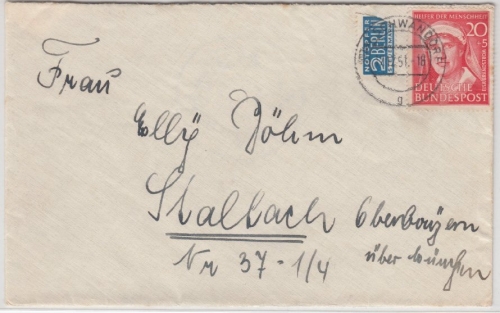 HELFER DER MENSCHHEIT
20+5
DEUTSCHE
BUNDESPOST
NOTOPFER
2 BERLIN
STEUERMARKE
51.-18
g
Frau
Elly Böhm
Stalbach Oberbayern
Nr 37-1/4 über München